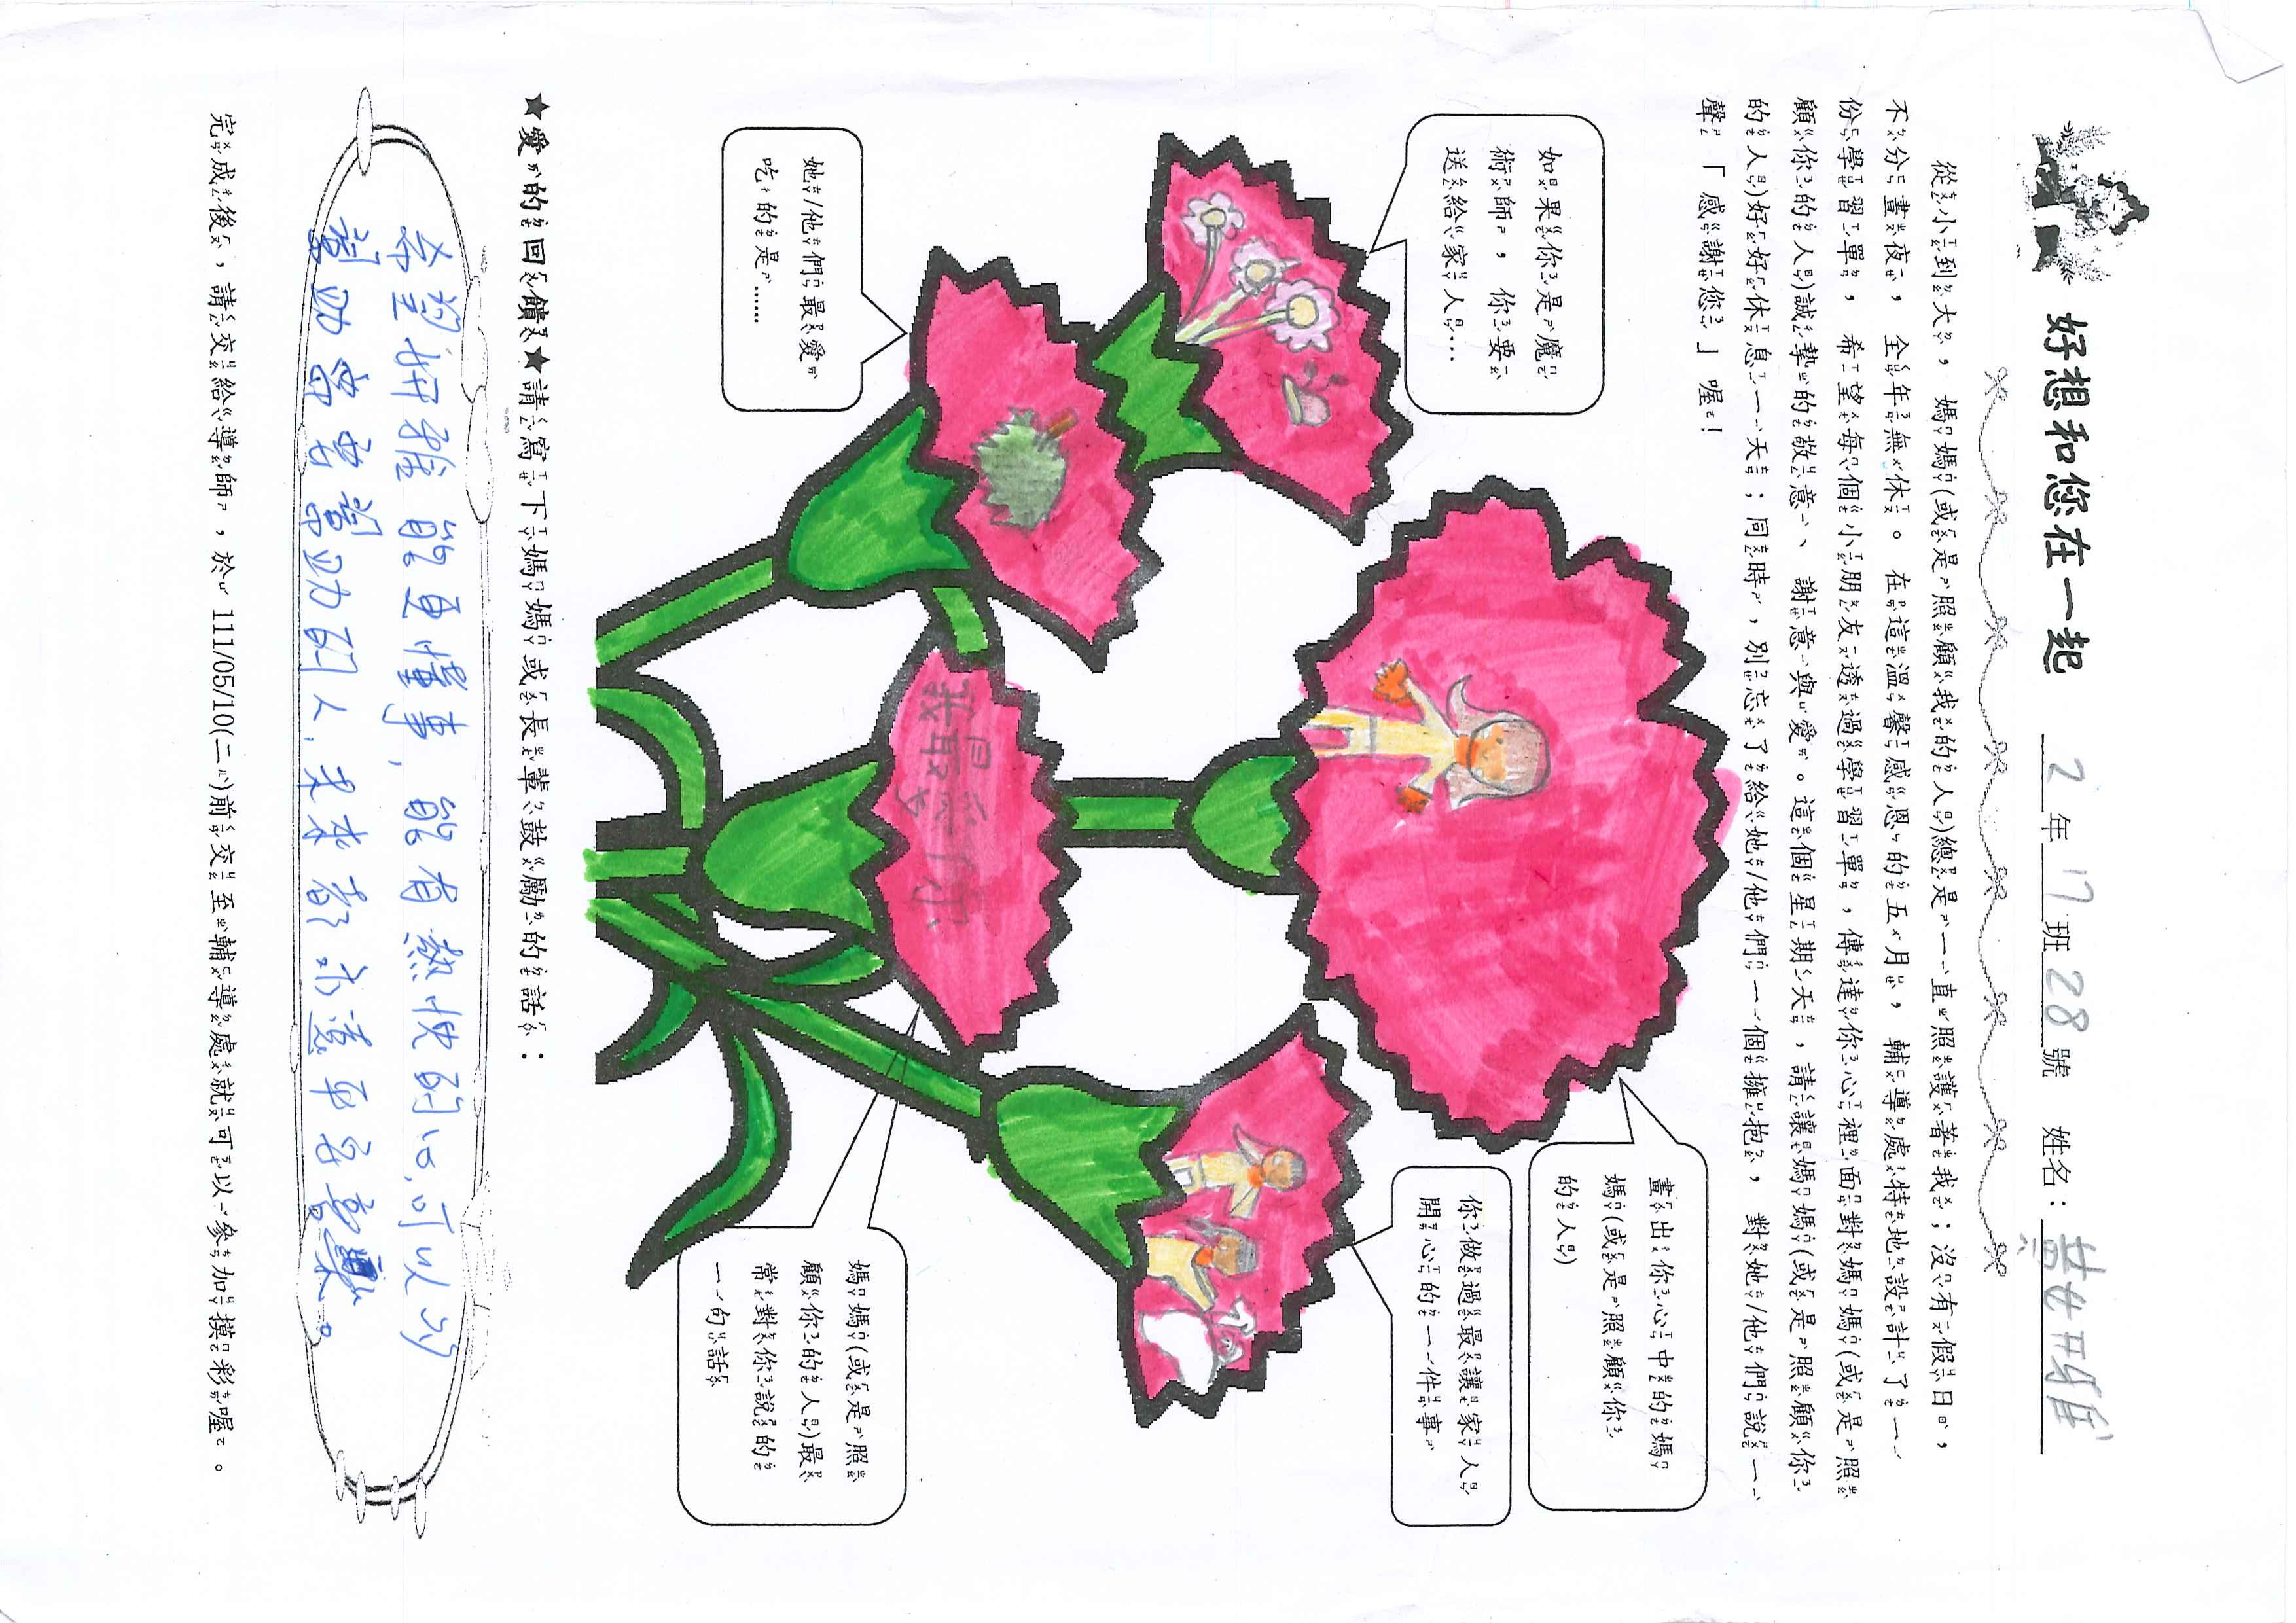 好想和您在一起 2年17班28號 姓名：黃妍雅
從小到大，媽媽(或是照顧我的人)總是一直照護著我；沒有假日，
不分晝夜，全年無休。在這溫馨感恩的五月，輔導處特地設計了一
份學習單，希望每個小朋友透過學習單，傳達你心裡面對媽媽(或是照
顧你的人)誠摯的敬意、謝意與愛。這個星期天，請讓媽媽(或是照顧你
的人)好好休息一天；同時，別忘了給她/他們一個擁抱，對她/他們說一
聲「感謝您」喔！
如果你是魔
術師，你要
送給家人…
畫出你心中的媽
媽(或是照顧你
的人)
你做過最讓家人
開心的一件事
她/他們最愛
吃的是……
我最愛你
媽媽(或是照
顧你的人)最
常對你說的
一句話
★愛的回饋★請寫下媽媽或長輩鼓勵的話：
希望妍雅能更懂事，能有熱忱的心，可以多
幫助需要幫助的人，未來都永遠平安喜樂。
完成後，請交給導師，於111/05/10(二)前交至輔導處就可以參加摸彩喔。